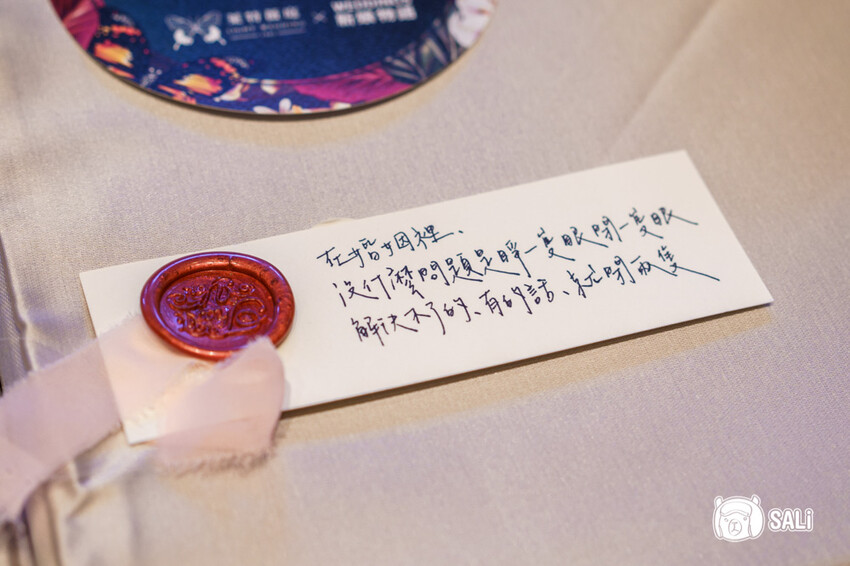 WEDDINGS
×
在婚姻裡、
沒什麼問題是睜一隻眼閉一隻眼
解決不了的、有的話、就閉兩隻
SALi